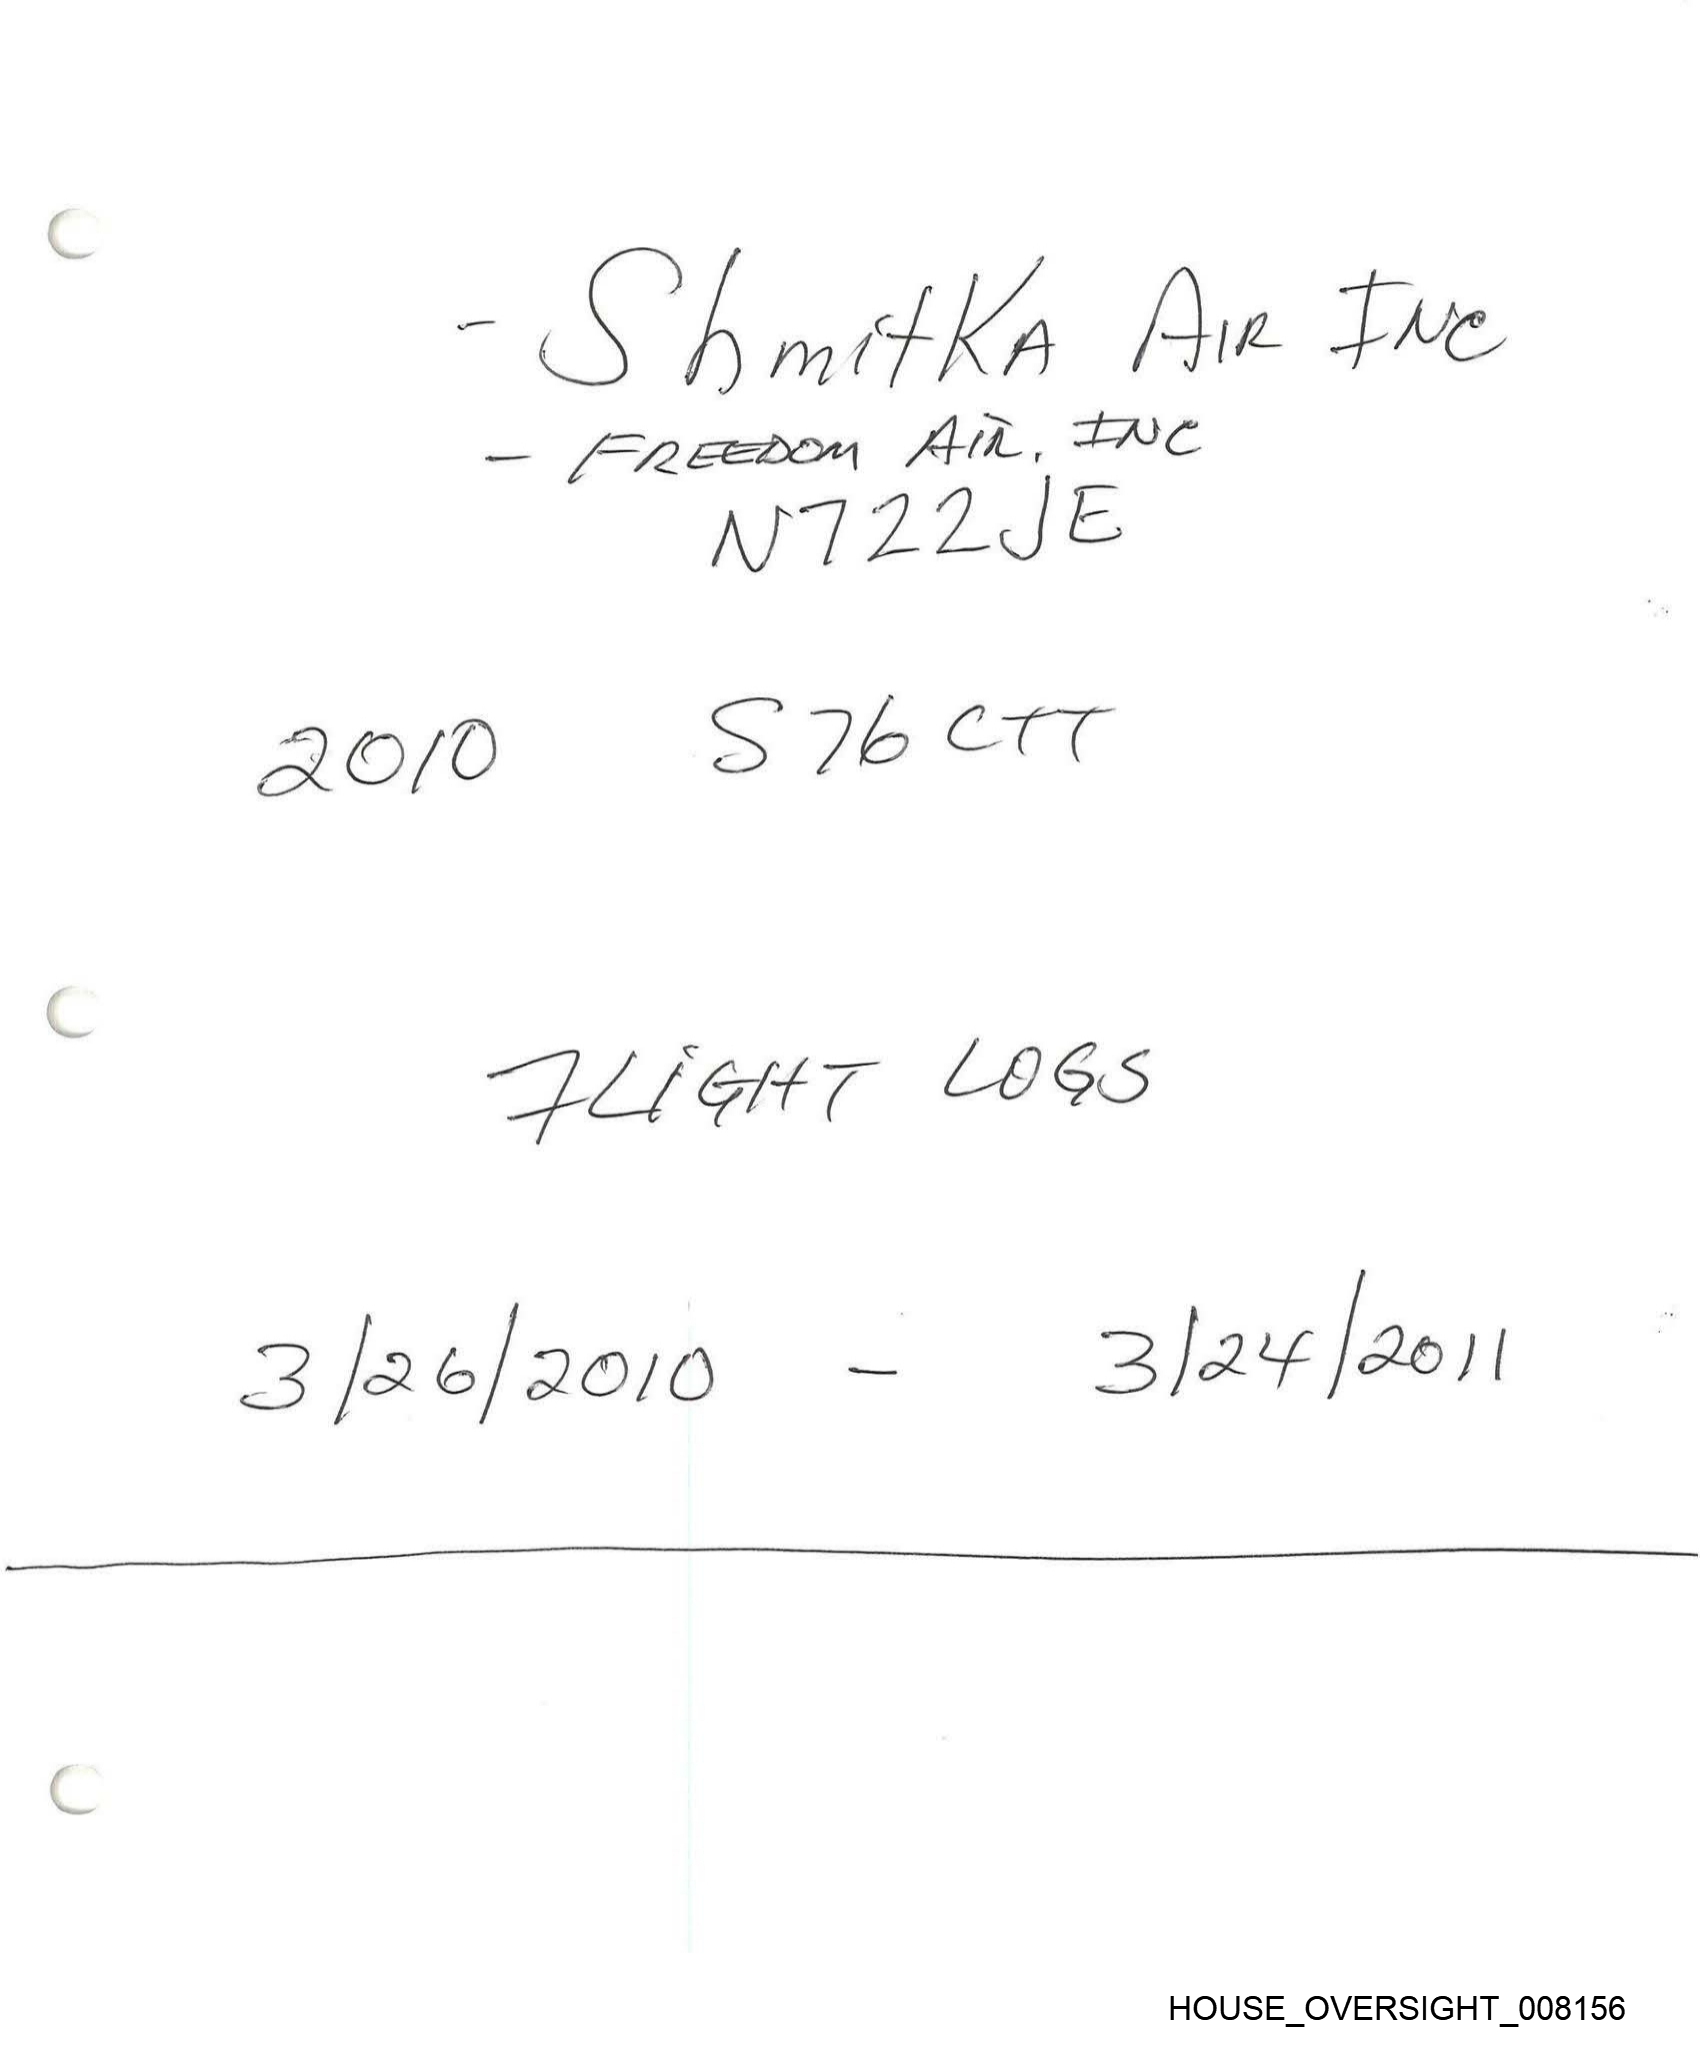 - ShmitKA AIR INC
- FREEDOM AIR. INC
N722JE
2010 S76 C++
FLiGHT LOGS
3/26/2010 - 3/24/2011
HOUSE_OVERSIGHT_008156